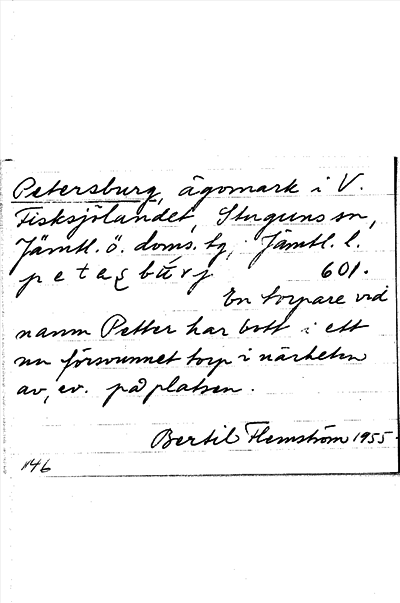 Petersburg, ägomark i V.
Fisksjölandet, Stuguns sn,
Jämtl. ö. doms. tg, Jämtl. l.
601.
En torpare vid
namn Petter har bott i ett
nu försvunnet torp i närheten
av, ev. på platsen.
Bertil Flemström 1955.
1146